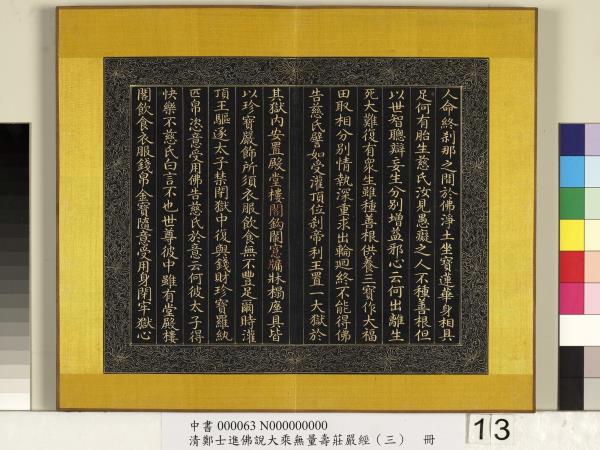 人命終剎那之間於佛淨土坐寶蓮華身相具
足何有胎生慈氏汝見愚癡之人不種善根但
以世智聰辯妄生分別增益邪心云何出離生
死大難復有眾生雖種善根供養三寶作大福
田取相分別情執深重求出輪迴終不能得佛
告慈氏譬如受灌頂位剎帝利王置一大獄於
其獄內安置殿堂樓閣鈎闌窻牖牀榻座具皆
以珍寶嚴飾所須衣服飲食無不豐足爾時灌
頂王驅逐太子禁閉獄中復與錢財珍寶羅紈
匹帛恣意受用佛告慈氏於意云何彼太子得
快樂不慈氏白言不也世尊彼中雖有堂殿樓
閣飲食衣服錢帛金寶隨意受用身閉牢獄心
中書 000063 N000000000
清鄭士進佛說大乘無量壽莊嚴經（三） 冊
13